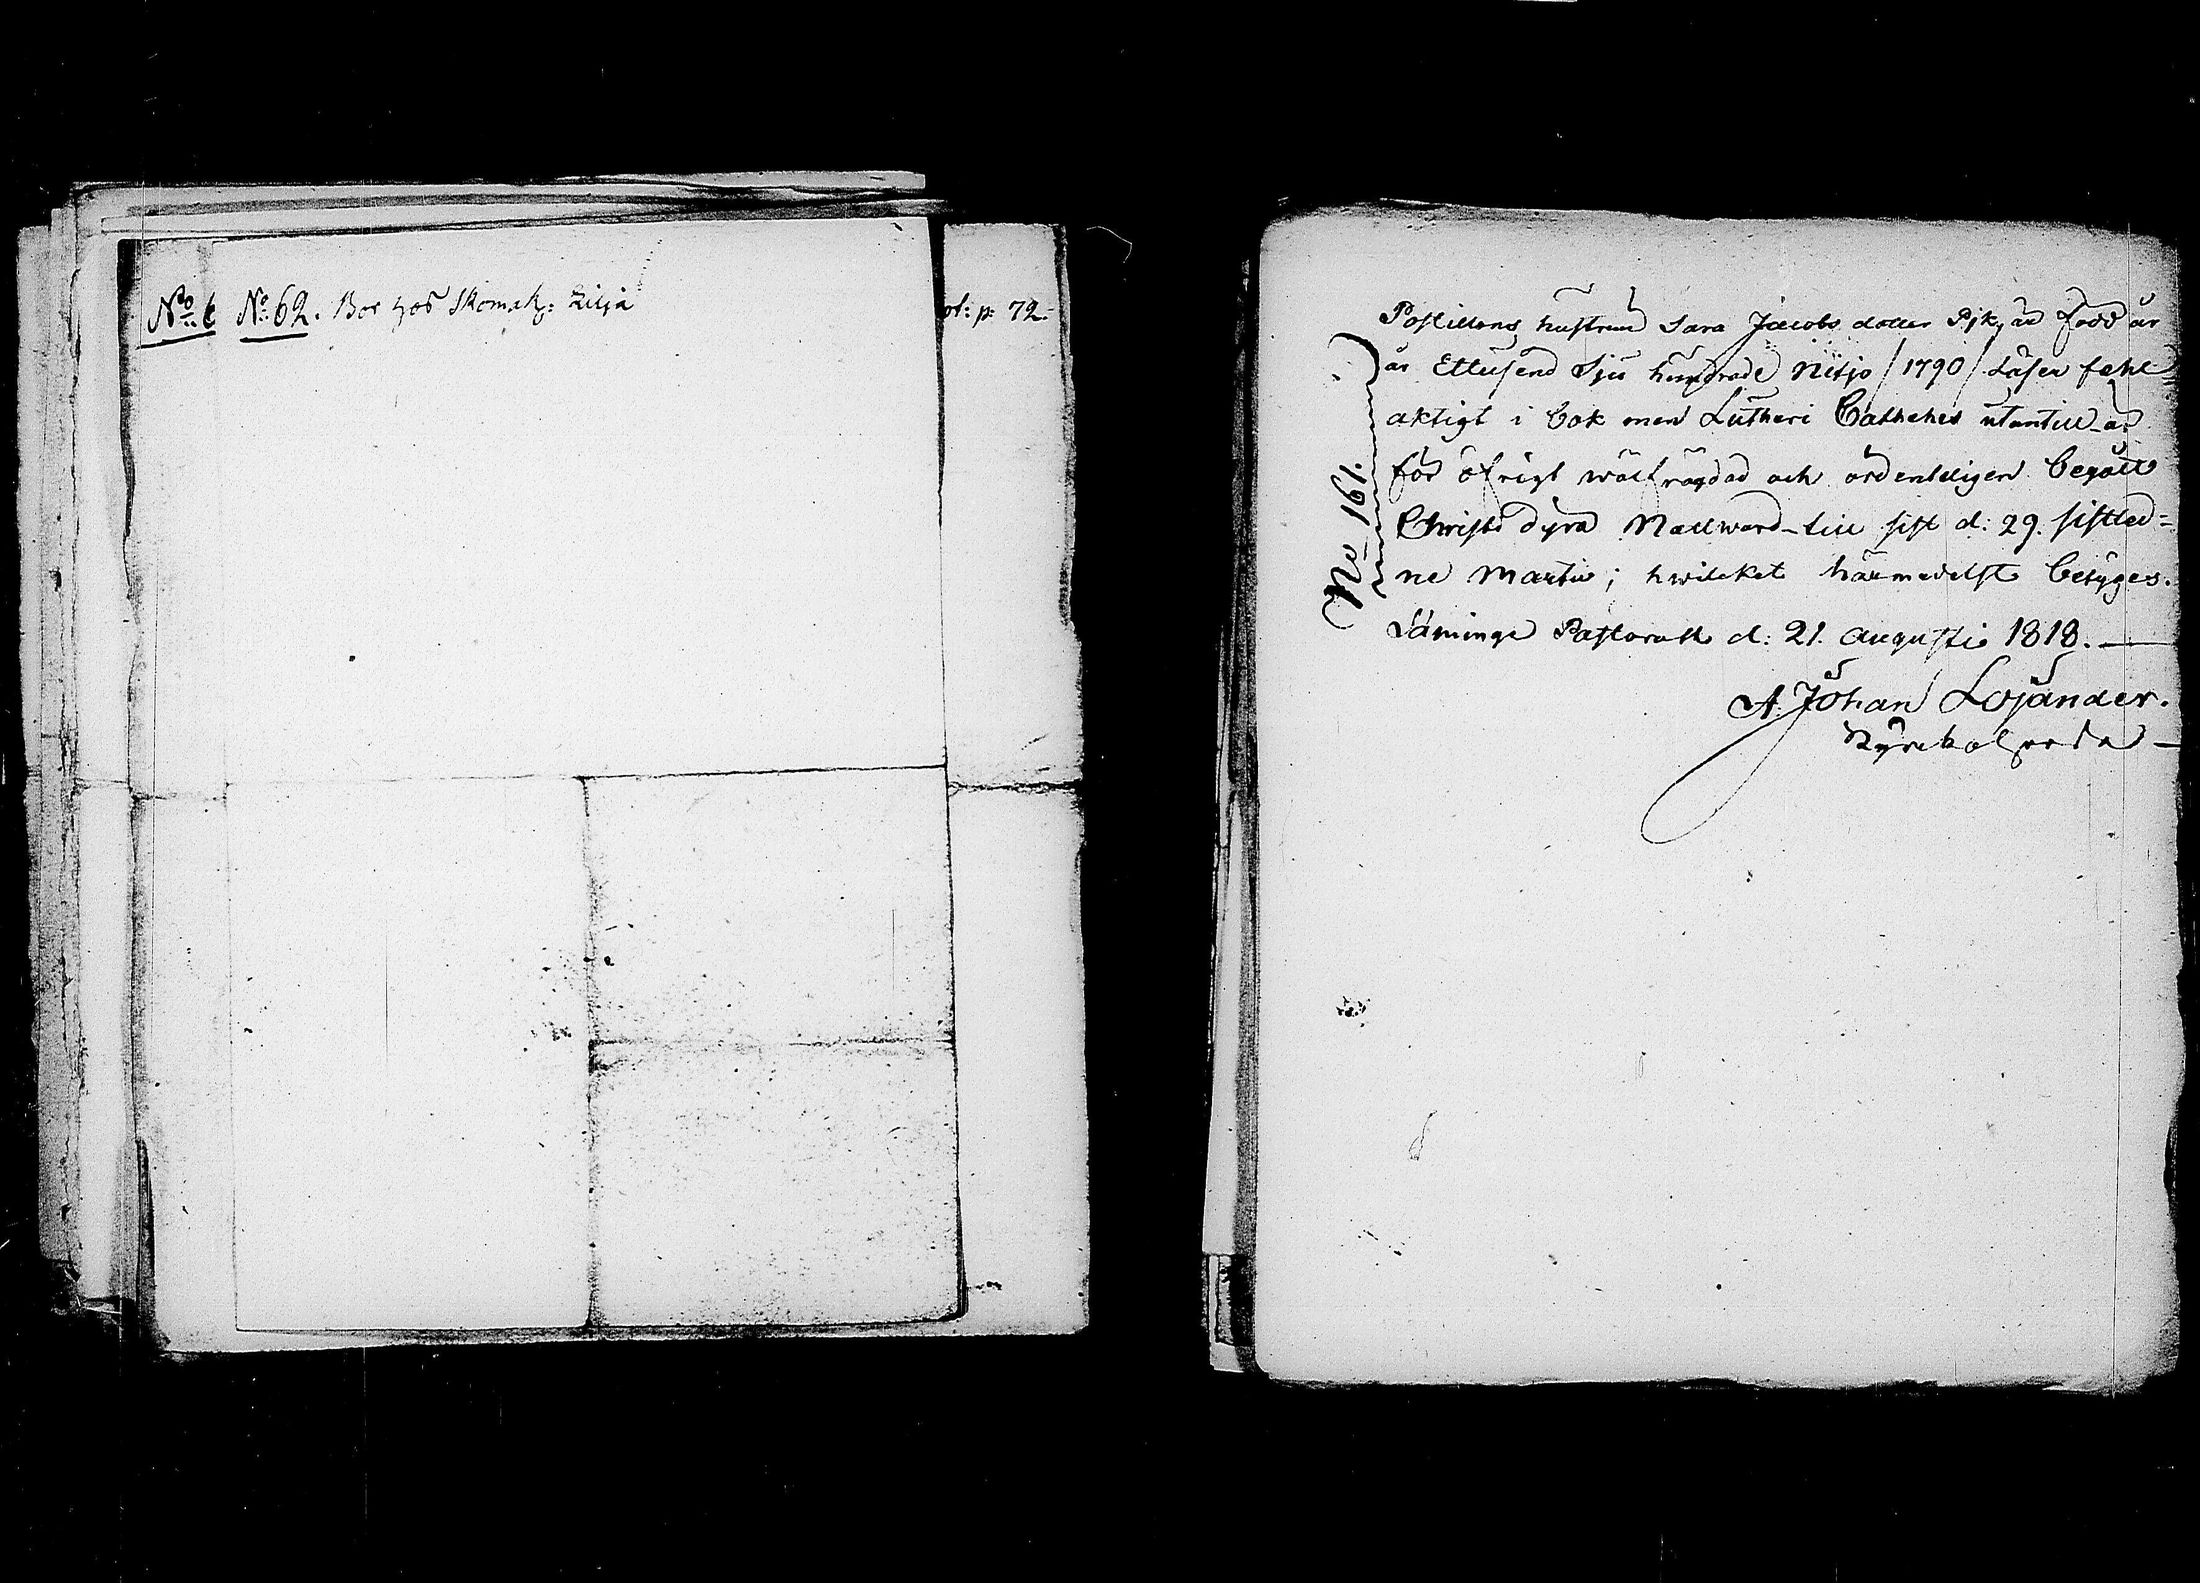 No 6
No 62. Bor hos Skomak: Lilja
pt: p: 72.
No 161.
Postillons hustrun Sara Jacobs dotter är född år
år Ettusend Sju hundrade Nitjo / 1790 / Läser fehl
aktigt i bok men Lutheri Cathehes utantill är
för öfrigt wälfrägdad och ordenteligen begått
Christi dyra Nattward till sist d: 29. sistled=
ne Martii; hwilcket härmedelst betyges.
Säminge Pastorath d: 21. Augusti 1818.
A: Johan Lojander.
Kyrckoherde